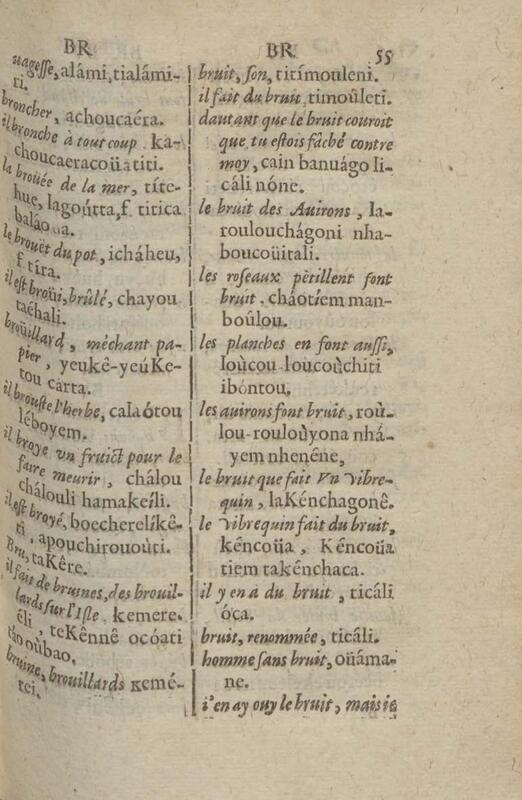 BR
uagesse, alámi, tialámi-
ri.
broncher, achoucaéra.
il bronche à tout coup. ka-
choucaeracoüatiti.
la brouée de la mer, títe-
hue, lagoútta, f. titica
baláoua.
le brouët du pot, icháheu,
f. tira.
il est broüi, brûlé, chayou
taéhali.
broüillard, méchant pa-
pier, yeukê-yeúKe-
tou cárta.
il brouste l'herbe, calaótou
léboyem.
il broye un fruict pour le
faire meurir, chálou
chálouli hamakeíli.
il est broyé, boecherelíkê-
ti, apouchirouoùti.
Bru, taKêre.
il fait de bruines, des brouil-
lards sur l'Isle. kemere.
éli, teKênnê ocóati
táo oúbao.
bruine, brouillards kemé-
rei.
BR 55
bruit, son, tirímouleni.
il fait du bruit, timoûleti.
dautant que le bruit couroit
que tu estois fâché contre
moy, cain banuágo li-
cáli nóne.
le bruit des Auirons, la-
roulouchágoni nha-
boucoüitali.
les roseaux pètillent font
bruit, cháotíem man-
boûlou.
les planches en font aussi,
loùcou loucoùchiti
ibóntou.
les auirons font bruit, roù-
lou-roulouÿona nhá-
yem nhenêne,
le bruit que fait un vibre-
quin, laKénchagonê.
le vibrequin fait du bruit,
kêncoüa, Kéncoüa
tiem takénchaca.
il y en a du bruit, ticáli
óca.
bruit, renommée, ticáli.
homme sans bruit, oüáma-
ne.
i'en ay ouy le bruit, mais ie